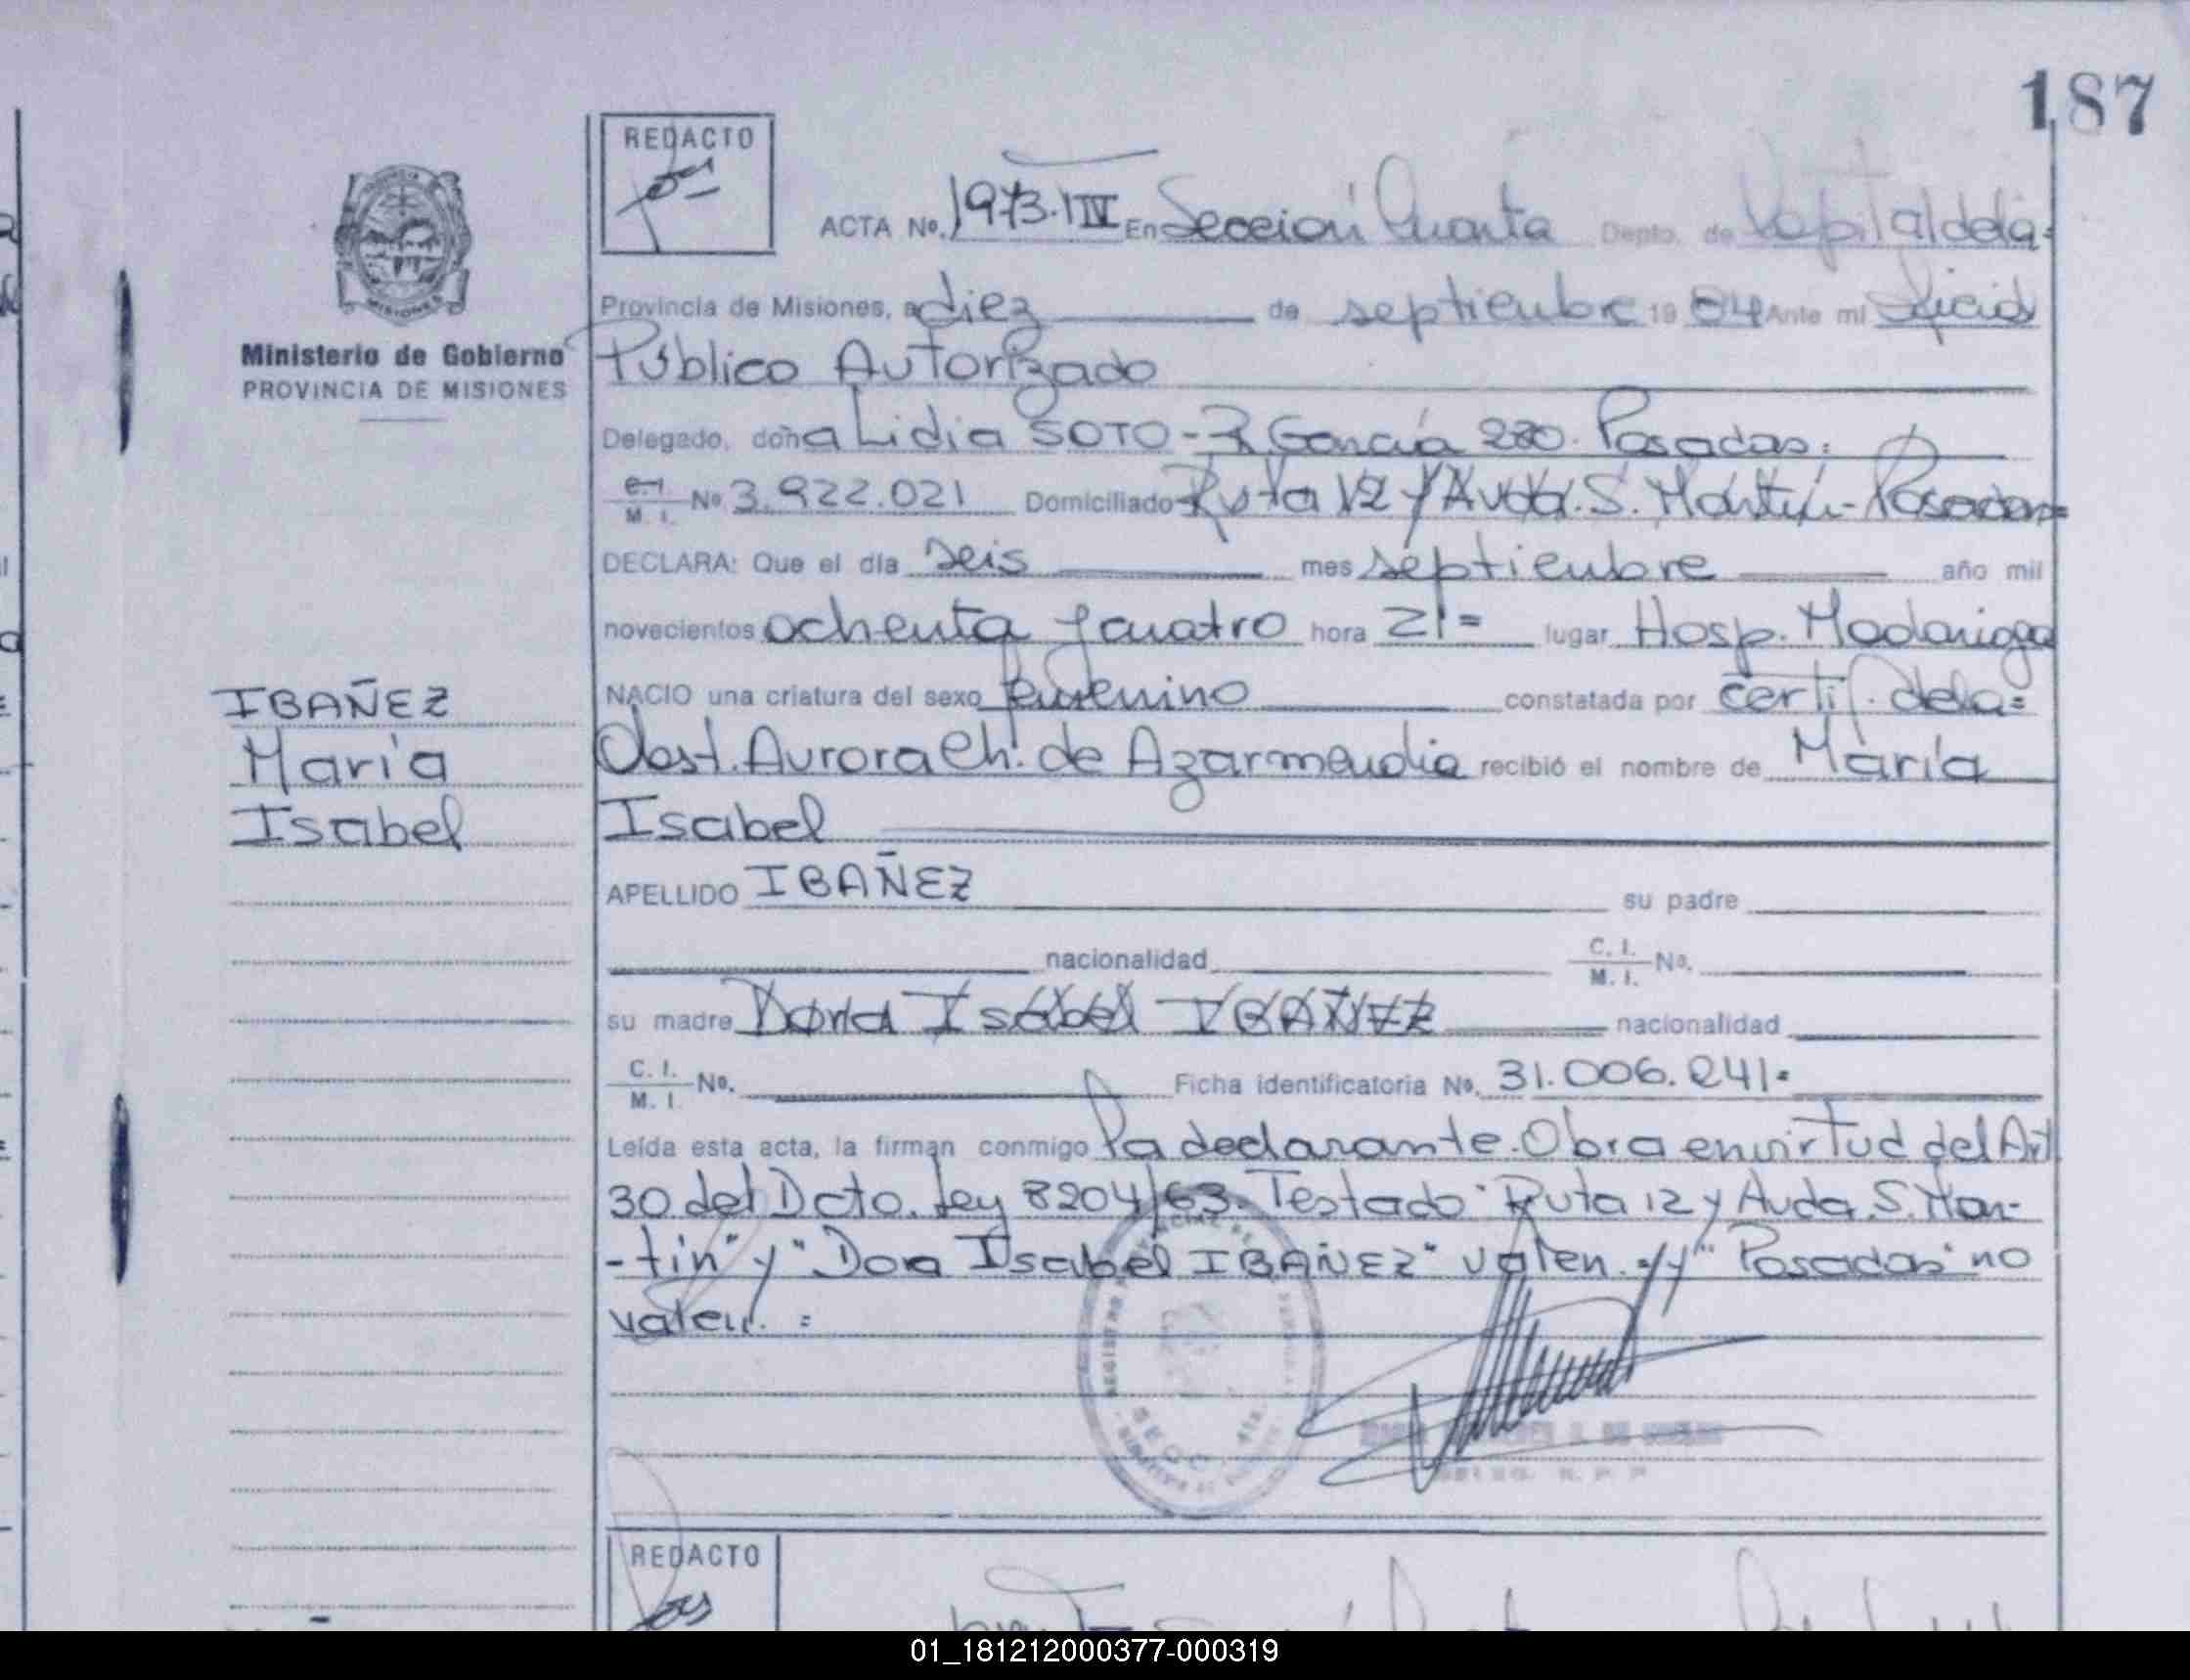 187
REDACTO
ACTA No. 1973.IIV En Sección Cuarta Depto. de Capital de la=
Provincia de Misiones, a diez de septiembre 19 84 Ante mi Oficial
Público Autorizado
Ministerio de Gobierno
PROVINCIA DE MISIONES
Delegado, doña Lidia SOTO - R. García 280. Posadas.
C.I. M. I. No 3.922.021 Domiciliado Ruta 12 y Avda. S. Martín - Posadas=
DECLARA: Que el día seis mes septiembre año mil
novecientos ochenta y cuatro hora 21= lugar Hosp. Madariaga
NACIO una criatura del sexo femenino constatada por certif. de la=
Obst. Aurora Ch. de Azarmendia recibió el nombre de María
Isabel
IBAÑEZ
María
Isabel
APELLIDO IBAÑEZ su padre
nacionalidad C. I. M. I. No.
su madre Dora Isabel IBAÑEZ nacionalidad
C. I. M. I. No. Ficha identificatoria No. 31.006.241=
Leída esta acta, la firman conmigo la declarante. Obra en virtud del Art
30 del Dcto. Ley 8204/63. Testado "Ruta 12 y Avda. S. Mar-
-tín" y "Dora Isabel IBAÑEZ" valen. y "Posadas" no
valen. =
SECC. 4ta.
REDACTO
01_181212000377-000319